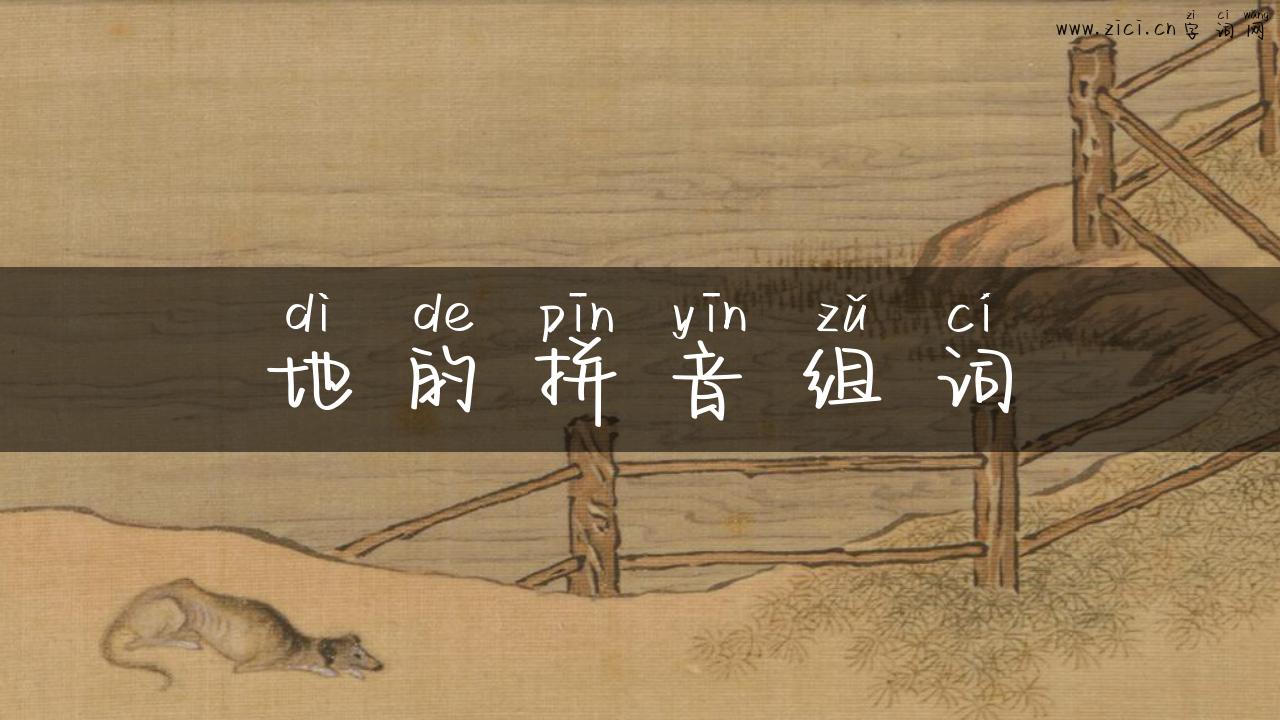 zi ci wang
www.zici.cn 字词网
dì de pīn yīn zǔ cí
地的拼音组词